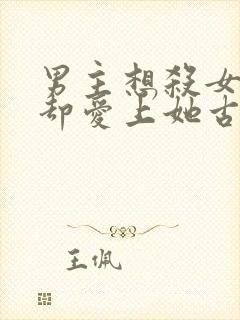 男主想殺女
却愛上她古
王佩